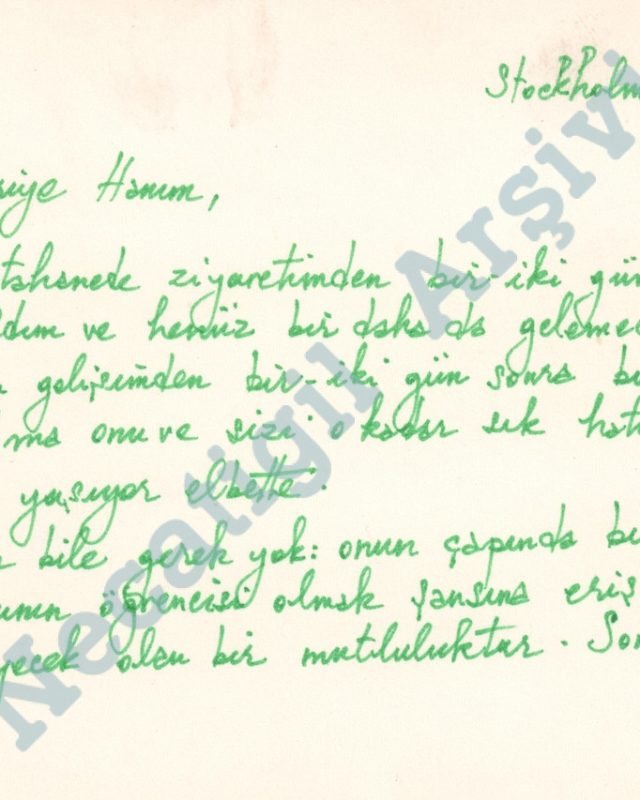 Stockholm
riye Hanım,
tahanede ziyaretimden bir-iki gün
dım ve henüz bir daha da geleme
gelişimden bir-iki gün sonra b
ma onu ve sizi o kadar sık hat
yaşıyor elbette.
bile gerek yok: onun çapında bi
unun öğrencisi olmak şansına eriş
yecek olan bir mutluluktur. Son
Necatigil Arşivi